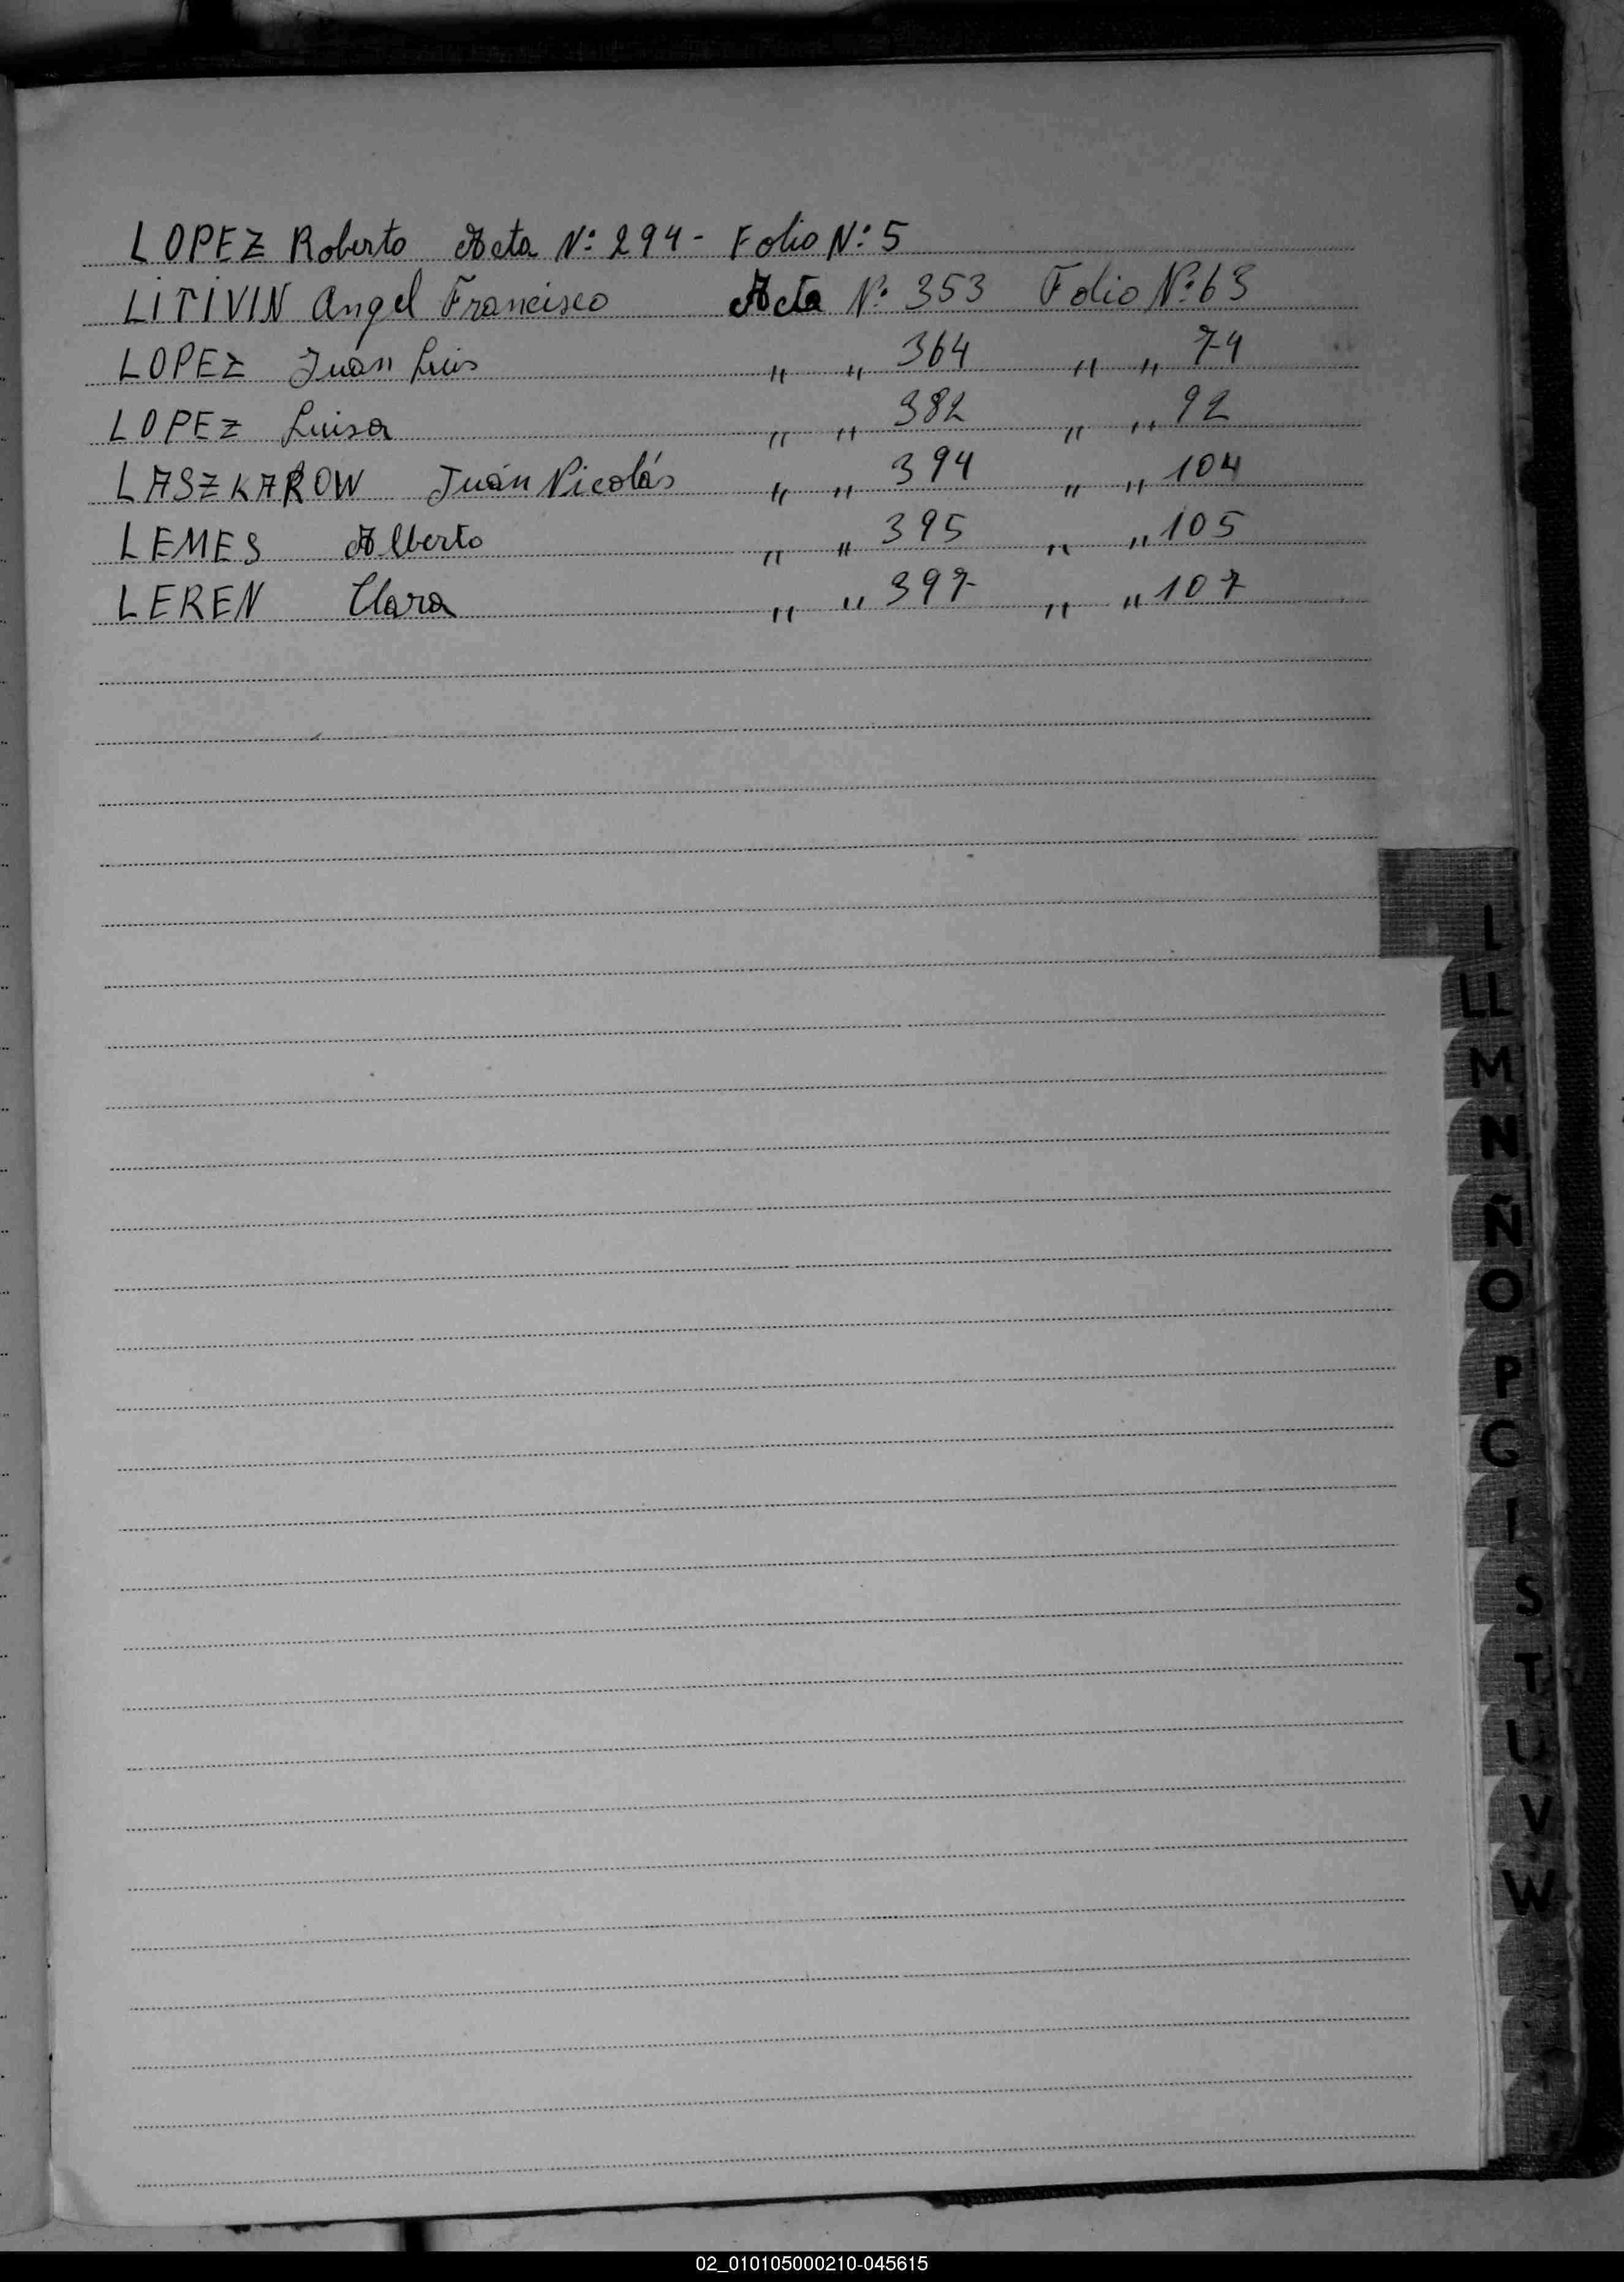 LOPEZ Roberto Acta Nº 294 - Folio Nº 5
LITIVIN Angel Francisco Acta Nº 353 Folio Nº 63
LOPEZ Juan Luis " " 364 " " 74
LOPEZ Luisa " " 382 " " 92
LASZKAROW Juan Nicolás " " 394 " " 104
LEMES Alberto " " 395 " " 105
LEREN Clara " " 397 " " 107
L
LL
M
N
Ñ
O
P
S
T
U
V
W
02_010105000210-045615